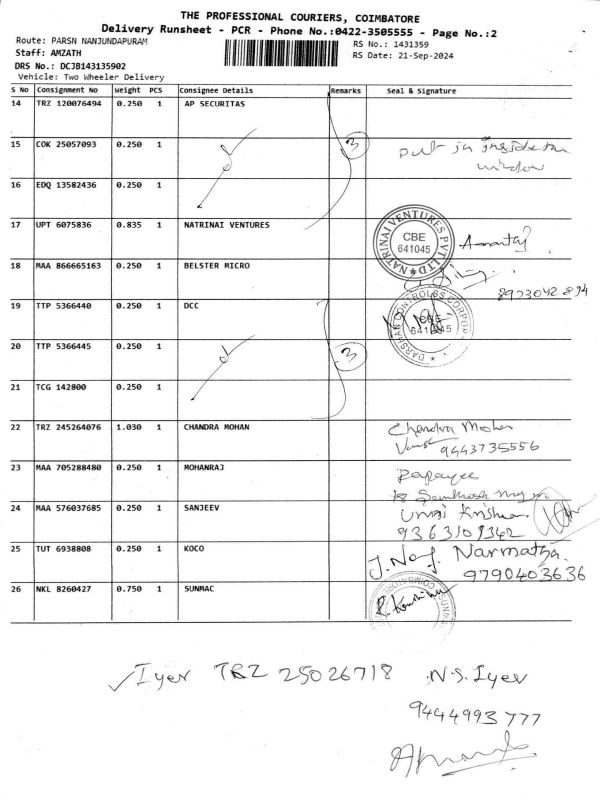 THE PROFESSIONAL COURIERS, COIMBATORE
Delivery Runsheet - PCR - Phone No.:0422-3505555 - Page No.:2
Route: PARSN NANJUNDAPURAM
RS No.: 1431359
Staff: AMZATH
RS Date: 21-Sep-2024
DRS No.: DCJB143135902
Vehicle: Two Wheeler Delivery
S No Consignment No Weight PCS Consignee Details Remarks Seal & Signature
14 TRZ 120076494 0.250 1 AP SECURITAS
15 COK 25057093 0.250 1 3 put in inside
window
16 EDQ 13582436 0.250 1
17 UPT 6075836 0.835 1 NATRINAI VENTURES
NATRINAI VENTURES PVT LTD
CBE
641045
18 MAA 866665163 0.250 1 BELSTER MICRO
19 TTP 5366440 0.250 1 DCC
DARSHAN CONTROLSS CORPOR
CBE
641045
20 TTP 5366445 0.250 1 3
21 TCG 142800 0.250 1
22 TRZ 245264076 1.030 1 CHANDRA MOHAN Chandra Mohan
9443735556
23 MAA 705288480 0.250 1 MOHANRAJ
24 MAA 576037685 0.250 1 SANJEEV Unni Krishnan
9363109342
25 TUT 6938808 0.250 1 KOCO J. Naf. Narmatha.
9790403636
26 NKL 8260427 0.750 1 SUNMAC
Iyer TRZ 25026718 N.S. Iyer
9444993777